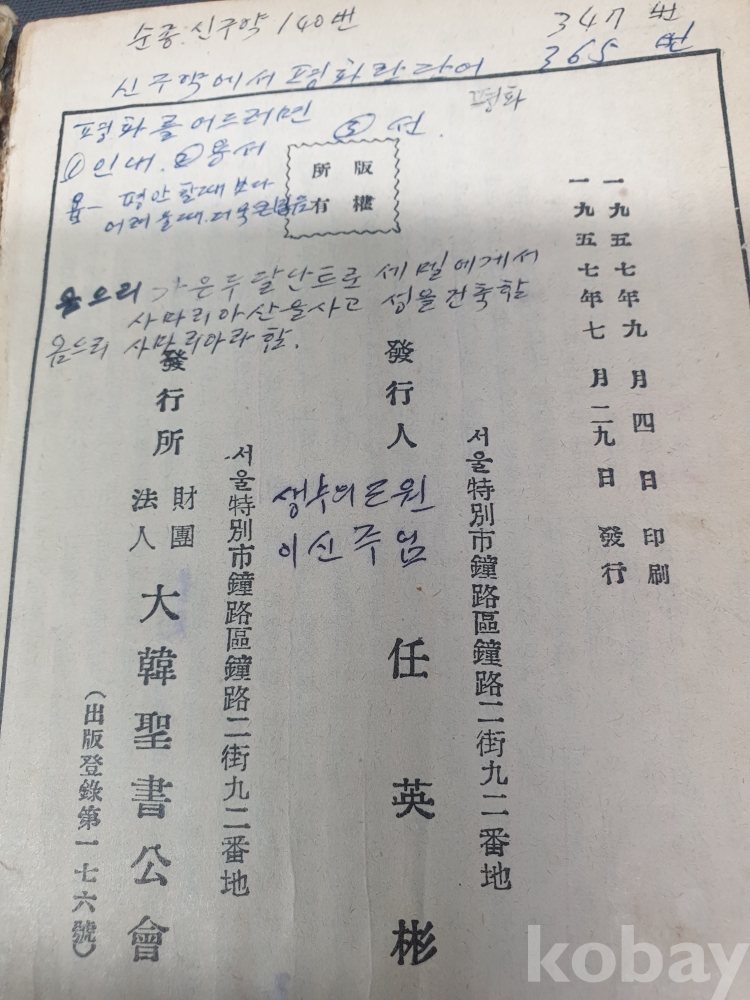 순종. 신구약 140번
347번
신구약에서 평화란 단어
365번
평화
평화를 얻으려면
① 인내. ② 용서
③ 선.
욥 - 평안할때 보다
어려울때. 더욱
版權
所有
오므리 가 은 두 달난트로 세멜에게서
사마리아 산을 사고 성을 건축함
옴으리 사마리아라 함.
一九五七年九月四日 印刷
一九五七年七月二九日 發行
서울特別市鐘路區鐘路二街九二番地
發行人 任英彬
생수의 근원
이신 주임
서울特別市鐘路區鐘路二街九二番地
發行所 財團法人 大韓聖書公會
(出版登錄第一七六號)
kobay